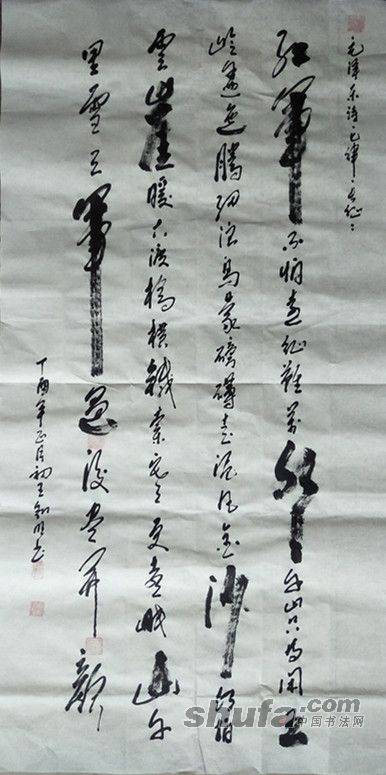 毛澤东诗·七律·长征
红軍不怕远征難萬水千山只等閑五
嶺逶迤騰细浪烏蒙磅礴走泥丸金沙水拍
雲崖暖大渡橋横鐵索寒更喜岷山千
里雪三軍過後尽開颜
丁酉年正月初
shufa.com
中国书法网